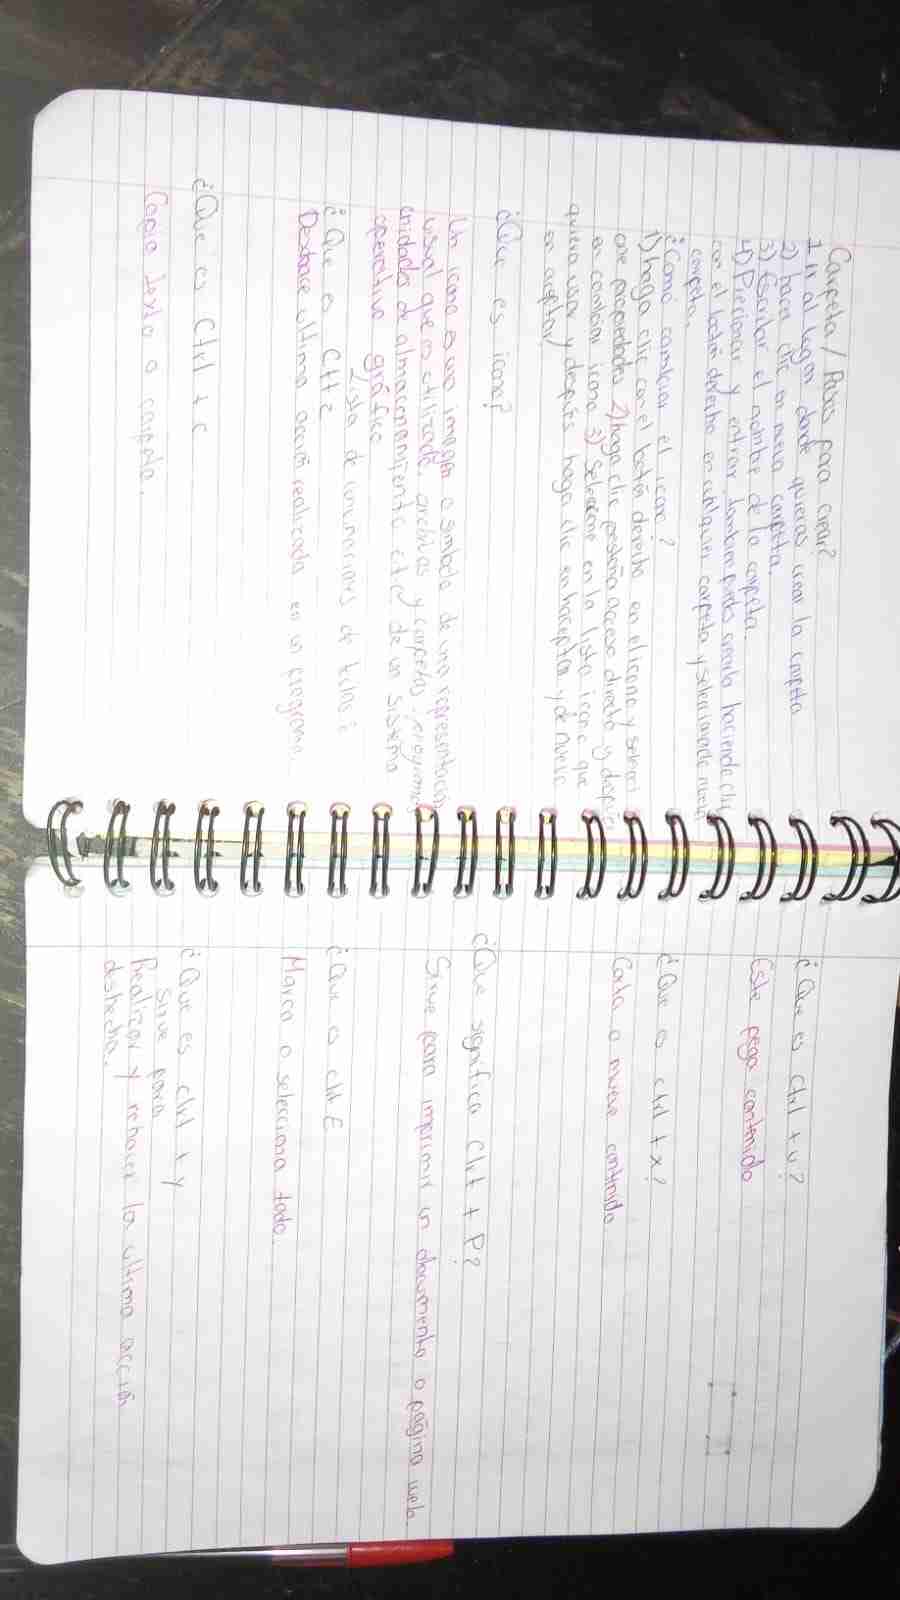 Carpeta / Pasos para crear?
1 Ir al lugar donde quieras crear la carpeta
2) hacer clic en nueva carpeta.
3) Escribir el nombre de la carpeta.
4) Precionar y entrar tambien puedes crearla haciendo clic
con el botón derecho en culquier carpeta y selecionarde nueva
carpeta.
¿Como cambiar el icono?
1) haga clic con el botón derecho en el icono y selecci
one propiedades 2) haga clic pestaña acceso directo y despues
en cambiar icono 3) seleccione en la lista icono que
quiera usar y después haga clic en haceptar y de nuevo
en aceptar)
¿Que es icono?
Un icono es una imagen o simbolo de una representación
visual que es utilizada, archivos y carpetas, programas
unidades de almacenamiento etc) de un sistema
operativo gráfico
Lista de conuinaciones de teclas:
¿Que es Ctl z
Deshace ultima acción realizada en un programa
¿Que es Ctrl + c
Copia texto o carpeta.
¿Que es Ctrl + v?
Este pega contenido
¿Que es ctrl + x?
Corta o mueve contenido
¿Que significa Ctrl + P?
Sirve para imprimir un documento o página web.
¿Que es ctrl E
Marca o selecciona todo.
¿Que es ctrl + y
Sirve para
Realizar y rehacer la ultima acción
deshecha.